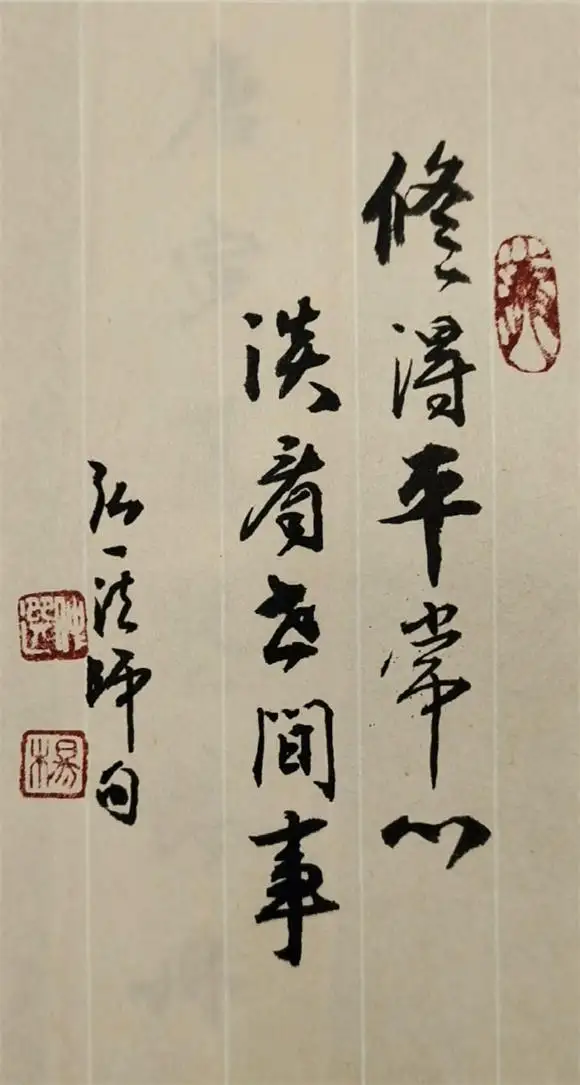 修得平常心
淡看世間事
弘一法师句
楊